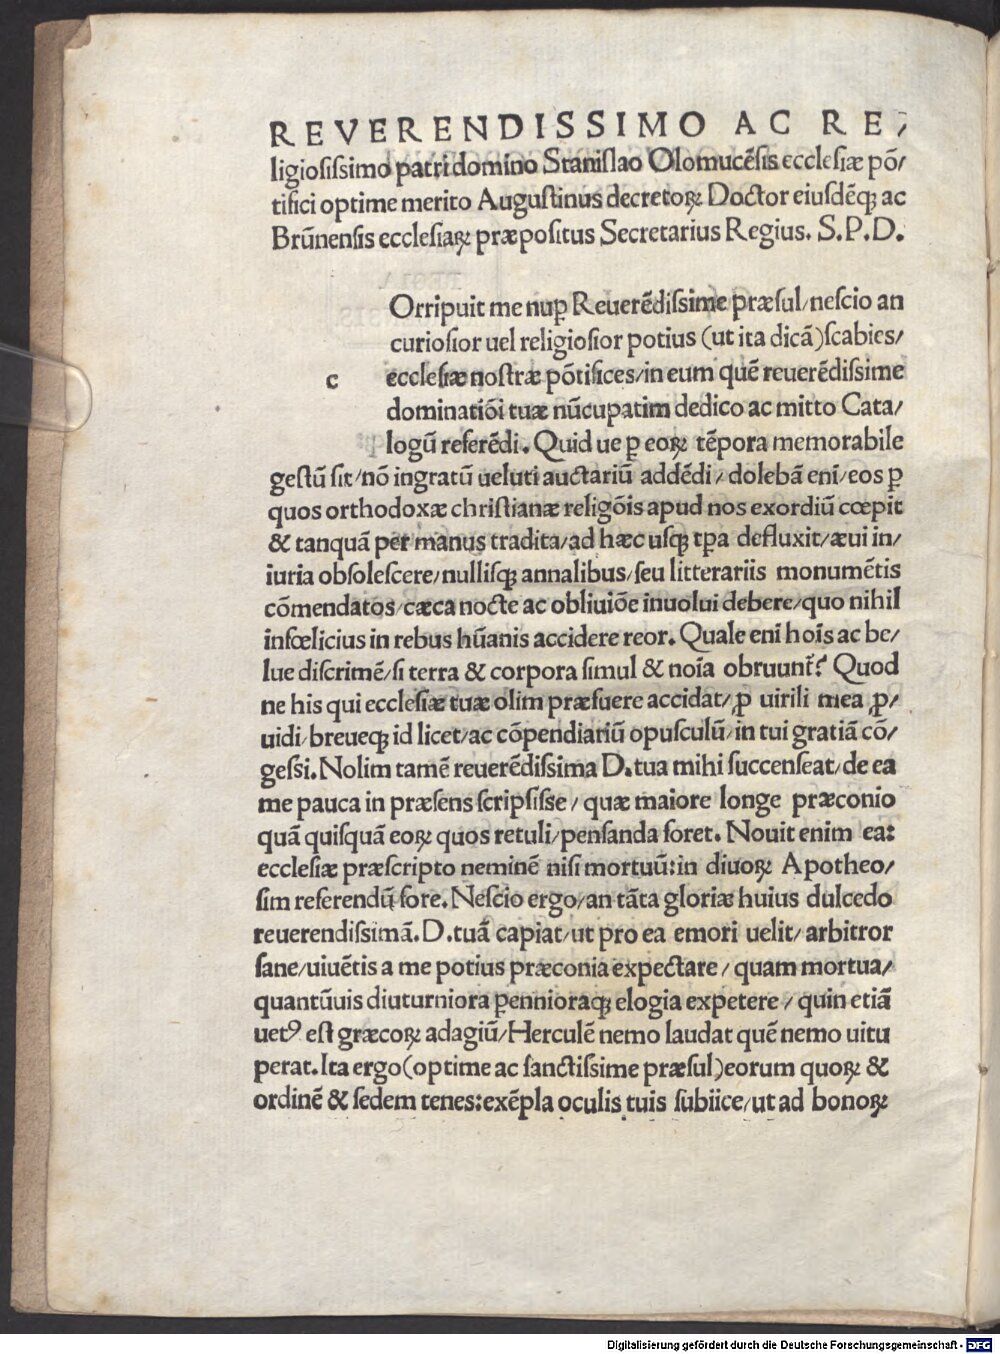 REVERENDISSIMO AC RE/
ligiosissimo patri domino Stanislao Olomucēsis ecclesiæ pō/
tifici optime merito Augustinus decretoꝝ Doctor eiusdēqꝫ ac
Brūnensis ecclesiaꝝ præpositus Secretarius Regius. S.P.D.
Orripuit me nuꝑ Reuerēdissime præsul/nescio an
curiosior uel religiosior potius (ut ita dicā)scabies/
c ecclesiæ nostræ pōtifices/in eum quē reuerēdissime
dominatiōi tuæ nūcupatim dedico ac mitto Cata/
logū referēdi. Quid ue ꝑ eoꝝ tēpora memorabile
gestū sit/nō ingratū ueluti auctariū addēdi/dolebā eni/eos ꝑ
quos orthodoxæ christianæ religōis apud nos exordiū cœpit
& tanquā per manus tradita/ad hæc usqꝫ tꝑa defluxit/æui in/
iuria obsolescere/nullisqꝫ annalibus/seu litterariis monumētis
cōmendatos/cæca nocte ac obliuiōe inuolui debere/quo nihil
infœlicius in rebus hūanis accidere reor. Quale eni hois ac be/
lue discrimē/si terra & corpora simul & noīa obruunt̄? Quod
ne his qui ecclesiæ tuæ olim præfuere accidat/ꝓ uirili mea ꝓ/
uidi/breueqꝫ id licet/ac cōpendiariū opusculū/in tui gratiā cō/
gessi. Nolim tamē reuerēdissima D. tua mihi succenseat/de ea
me pauca in præsens scripsisse/quæ maiore longe præconio
quā quisquā eoꝝ quos retuli/pensanda foret. Nouit enim ea:
ecclesiæ præscripto neminē nisi mortuū: in diuoꝝ Apotheo/
sim referendū fore. Nescio ergo/an tāta gloriæ huius dulcedo
reuerendissimā. D. tuā capiat/ut pro ea emori uelit/arbitror
sane/uiuētis a me potius præconia expectare/quam mortua/
quantūuis diuturniora ꝑennioraqꝫ elogia expetere/quin etiā
uetꝰ est græcoꝝ adagiū/Herculē nemo laudat quē nemo uitu
perat. Ita ergo(optime ac sanctissime præsul)eorum quoꝝ &
ordinē & sedem tenes: exēpla oculis tuis subiice/ut ad bonoꝝ
Digitalisierung gefördert durch die Deutsche Forschungsgemeinschaft - DFG